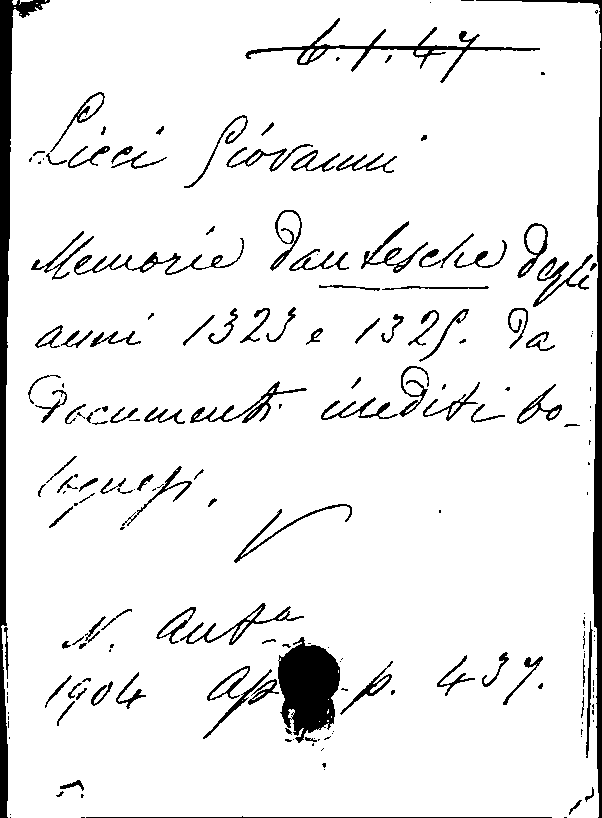 6.1.47
Licci Giovanni
Memorie dantesche degli
anni 1323 e 1325. Da
Documenti inediti bo-
lognesi.
N. Ant.a
1904 Ap p. 437.